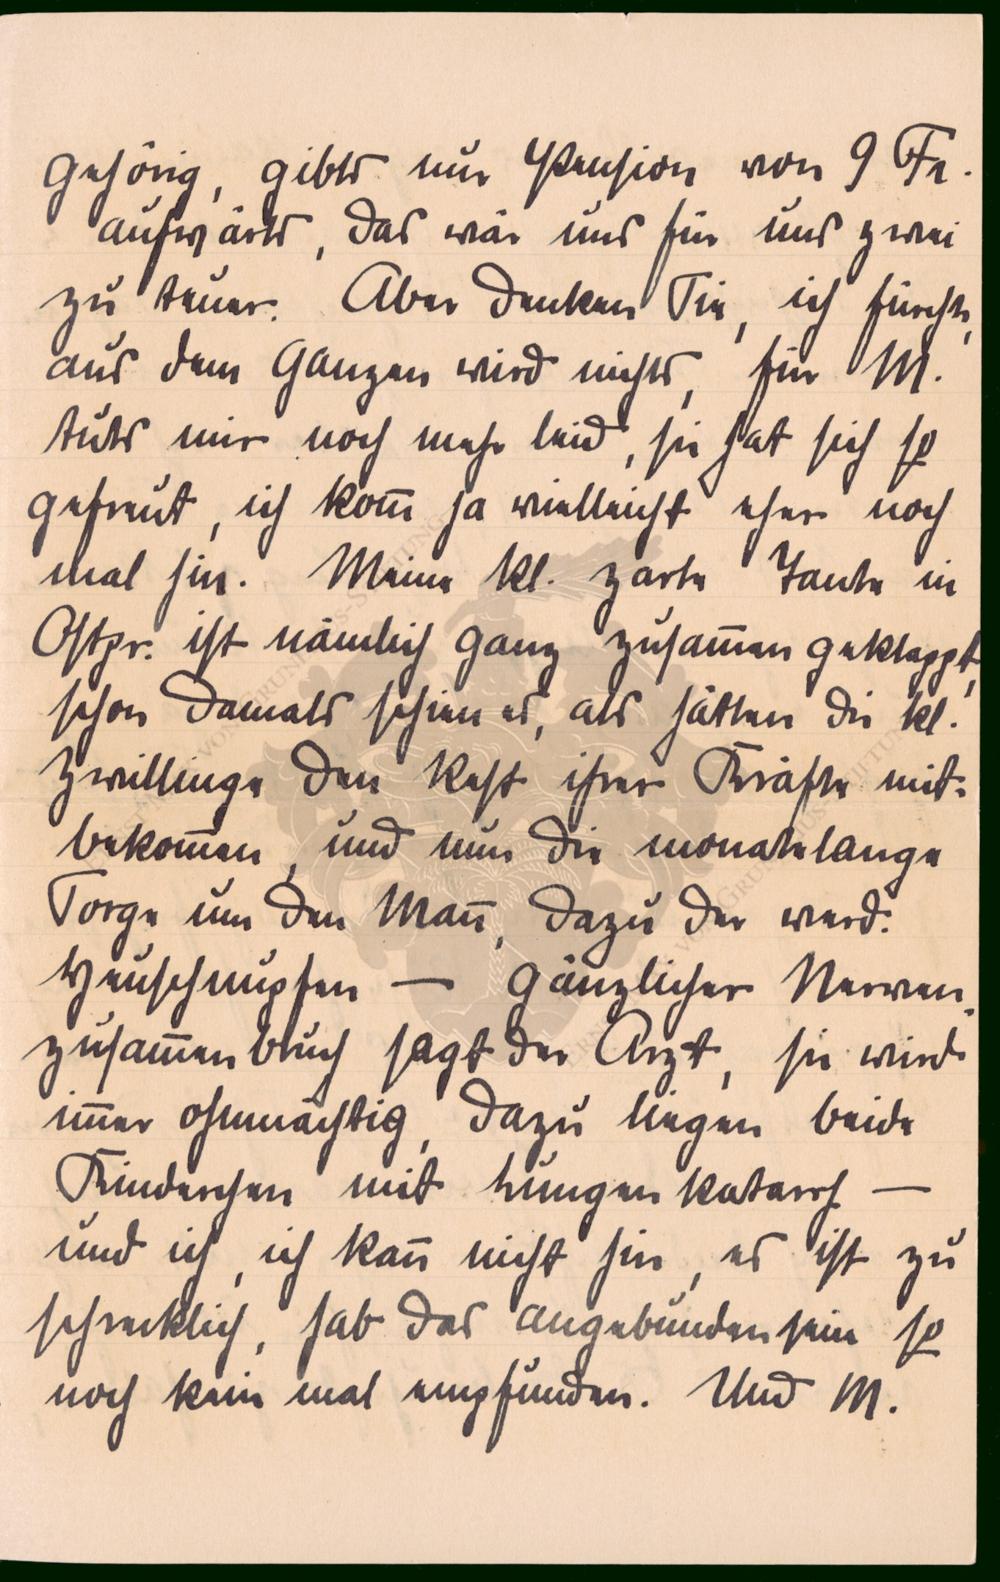 gehörig, gibts nur Pension von 9 Fr.
aufwärts, das wär uns für uns zwei
zu teuer. Aber denken Sie, ich fürcht,
aus dem Ganzen wird nichts, für M.
tuts mir noch mehr leid, sie hat sich so
gefreut, ich kom̅ ja vielleicht eher noch
mal hin. Meine kl. zarte Tante in
Ostpr. ist nämlich ganz zusam̅en geklappt,
schon damals schien es, als hätten die kl.
Zwillinge den Rest ihrer Kräfte mit-
bekom̅en, und nun die monatelange
Sorge um den Man̅, dazu der werd.
Heuschnupfen — gänzlicher Nerven-
zusam̅enbruch sagt der Arzt, sie wird
im̅er ohnmächtig, dazu liegen beide
Kinderchen mit Lungenkatarrh —
und ich, ich kan̅ nicht hin, es ist zu
schrecklich, hab das angebundensein so
noch kein mal empfunden. Und M.